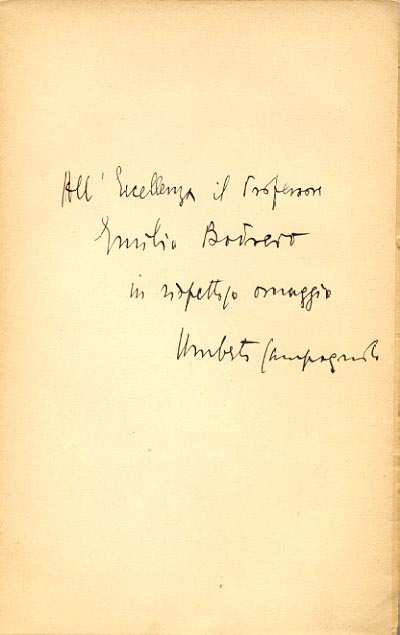 All'Eccellenza il Professore
Emilio Bodrero
in rispettoso omaggio
Umberto Campagnolo